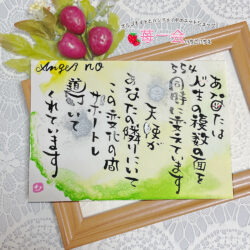 苺一会
Angel no
554
あなたは
人生の複数の面を
同時に変えています
天使が
あなたの隣りにいて
この変化の間
サポートし
導いて
くれています